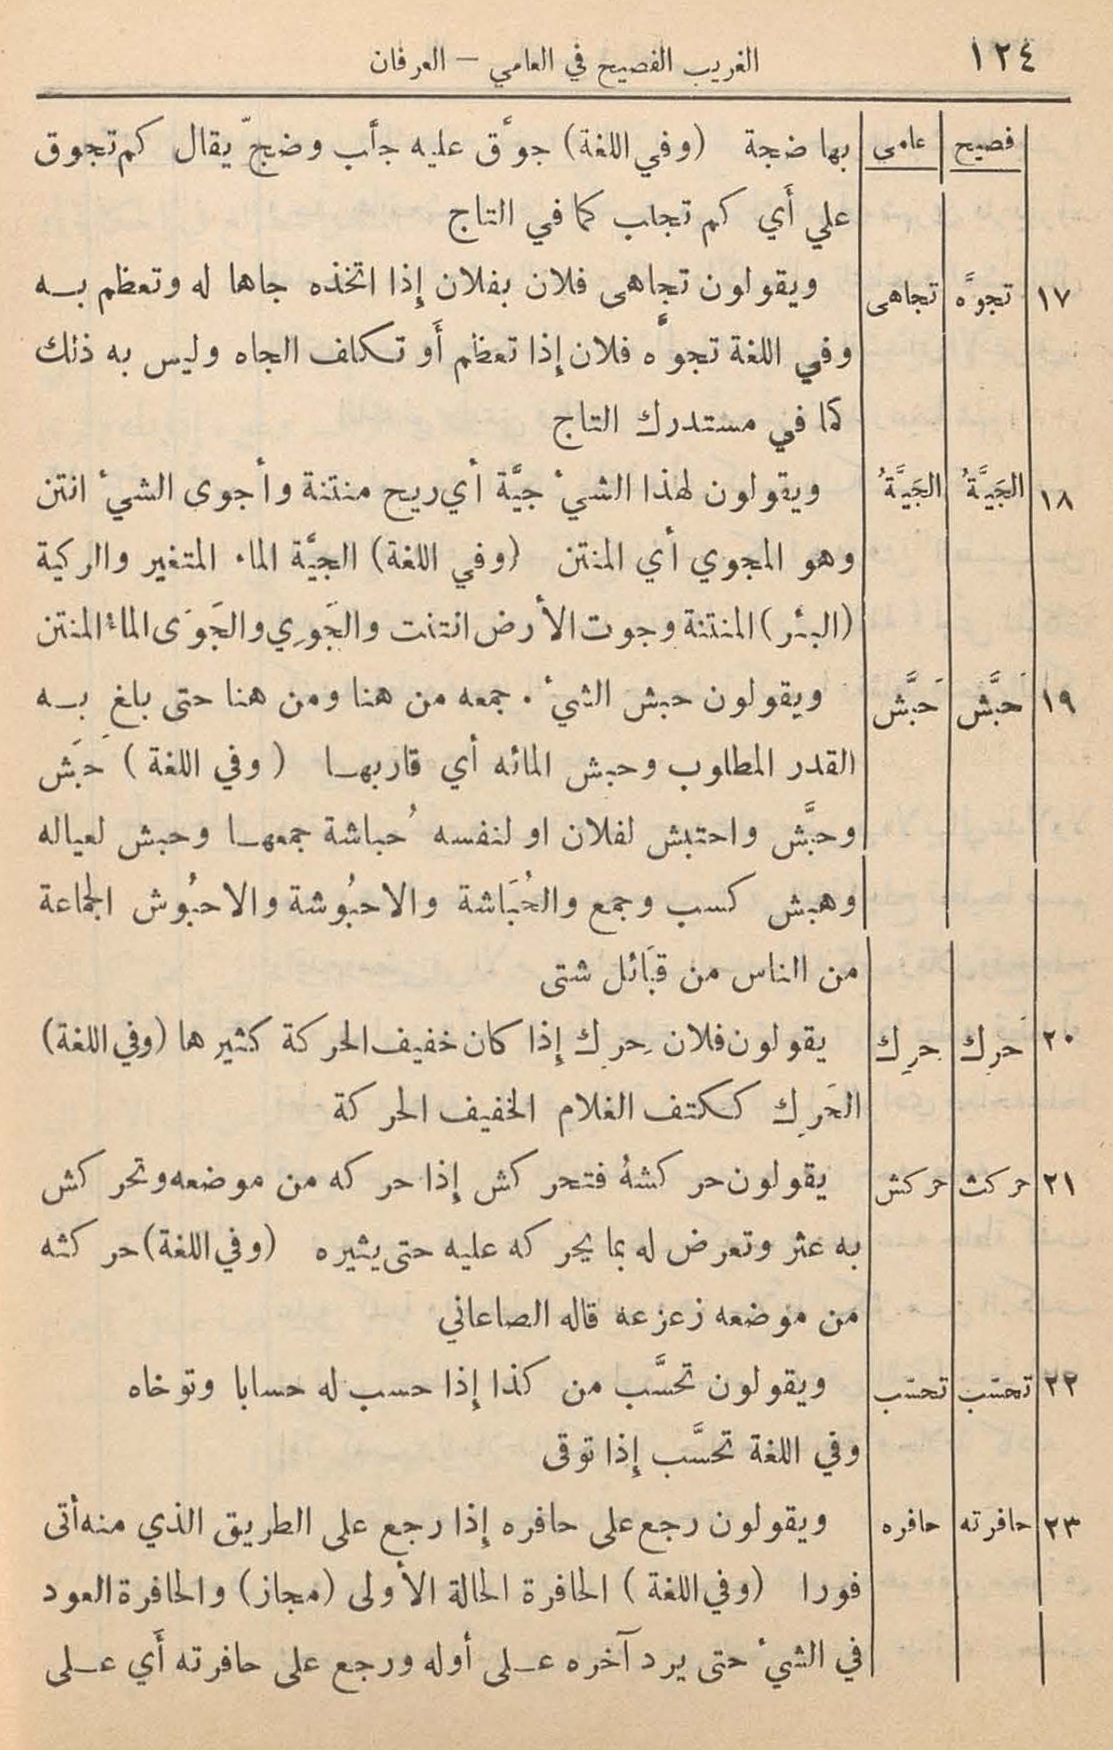 ١٢٤ الغريب الفصيح في العامي — العرفان
فصيح عامي بها ضجة (وفي اللغة) جوَّق عليه جأب وضجّ يقال كم تجوق
علي أَي كم تجلب كما في التاج
١٧ تجوَّه تجاهى ويقولون تجاهى فلان بفلان إِذا اتخذه جاها له وتعظم بـه
وفي اللغة تجوَّه فلان إِذا تعظم أَو تكلف الجاه وليس به ذلك
كما في مستدرك التاج
١٨ الجَيَّةُ الجَيَّةُ ويقولون لهذا الشيءْ جيَّة أي ريح منتنة وأجوى الشيءْ انتن
وهو المجوي أي المنتن (وفي اللغة) الجيَّة الماء المتغير والركية
(البئر) المنتنة وجوت الأرض انتنت والجَوِي والجَوَى الماء المنتن
١٩ حَبَّش حَبَّش ويقولون حبش الشيءْ . جمعه من هنا ومن هنا حتى بلغ بـه
القدر المطلوب وحبش المائه أي قاربهـا (وفي اللغة) حَبَش
وحبَّش واحتبش لفلان او لنفسه حُباشة جمعهـا وحبش لعياله
وهبش كسب وجمع والحُبَاشة والاحبُوشة والاحبُوش الجماعة
من الناس من قبَائل شتى
٢٠ حَرِك حرِك يقولون فلان حِرِك إِذا كان خفيف الحركة كثيرها (وفي اللغة)
الحَرِك ككتف الغلام الخفيف الحركة
٢١ حركث حركش يقولون حركشهُ فتحركش إِذا حركه من موضعه وتحركش
به عثر وتعرض له بما يحركه عليه حتى يثيره (وفي اللغة) حركثه
من موضعه زعزعه قاله الصاعاني
٢٢ تحسّب تحسّب ويقولون تحسَّب من كذا إِذا حسب له حسابا وتوخاه
وفي اللغة تحسَّب إِذا توقى
٢٣ حافرته حافره ويقولون رجع على حافره إِذا رجع على الطريق الذي منه أتى
فورا (وفي اللغة) الحافرة الحالة الأولى (مجاز) والحافرة العود
في الشيءْ حتى يرد آخره عـلى أوله ورجع على حافرته أَي عـلى